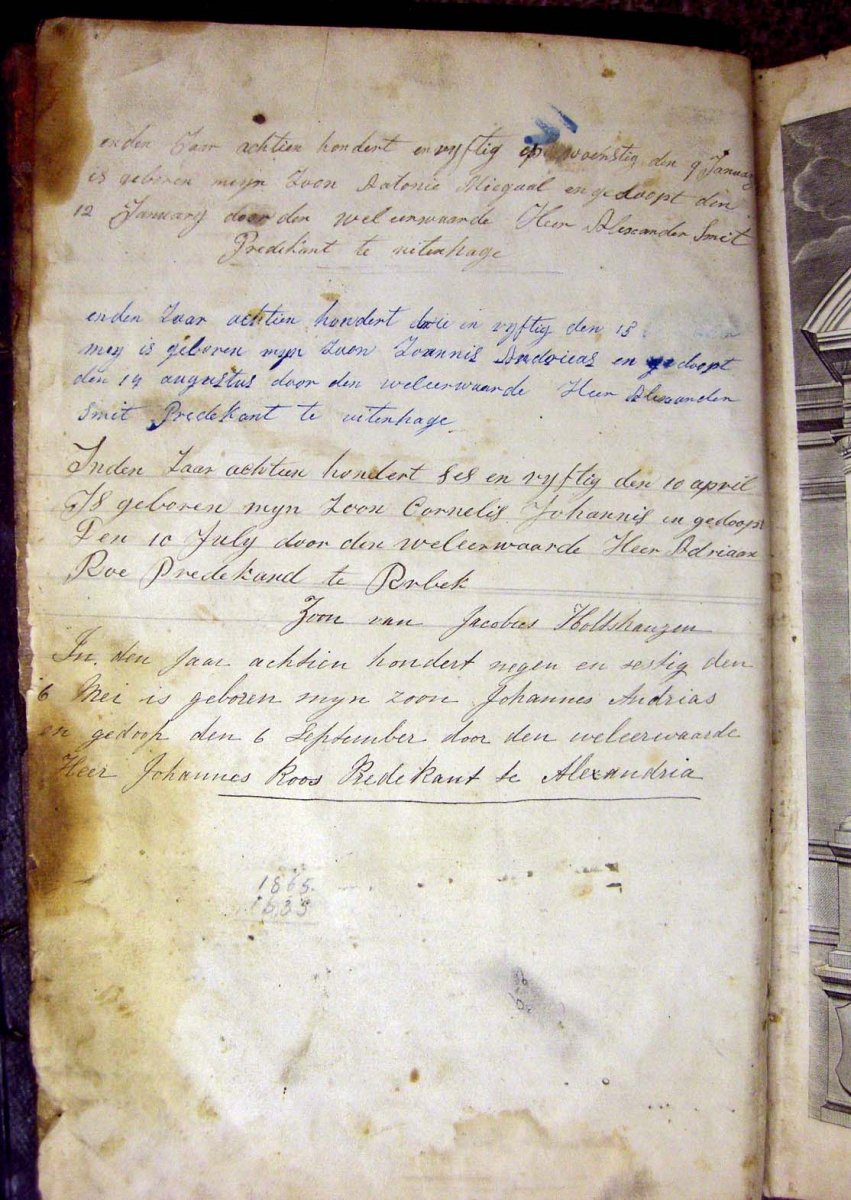 enden Jaar achtien hondert en vyftig op woenstig den 9 January
is geboren meyn Zoon Antonie Miegaal en gedoopt den
12 January door den weleerwaarde Heer Alexander Smit
Predekant te uitenhage
enden Jaar achtien hondert drie en vyftig den 18
mey is geboren myn Zoon Joannis Andrieas en gedoopt
den 14 augustus door den weleerwaarde Heer Alexander
Smit Predekant te uitenhage
Inden Jaar achtien hondert ses en vyftig den 10 april
Is geboren myn Zoon Cornelis Johannis en gedoopt
Den 10 July door den weleerwaarde Heer Adriaan
Roe Predekand te Rebek
Zoon van Jacobus Holtshauzen
In den Jaar achtien hondert negen en sestig den
6 Mei is geboren myn zoon Johannes Andrias
en gedoop den 6 September door den weleerwaarde
Heer Johannes Roos Predekant te Alexandria
1865.
1635